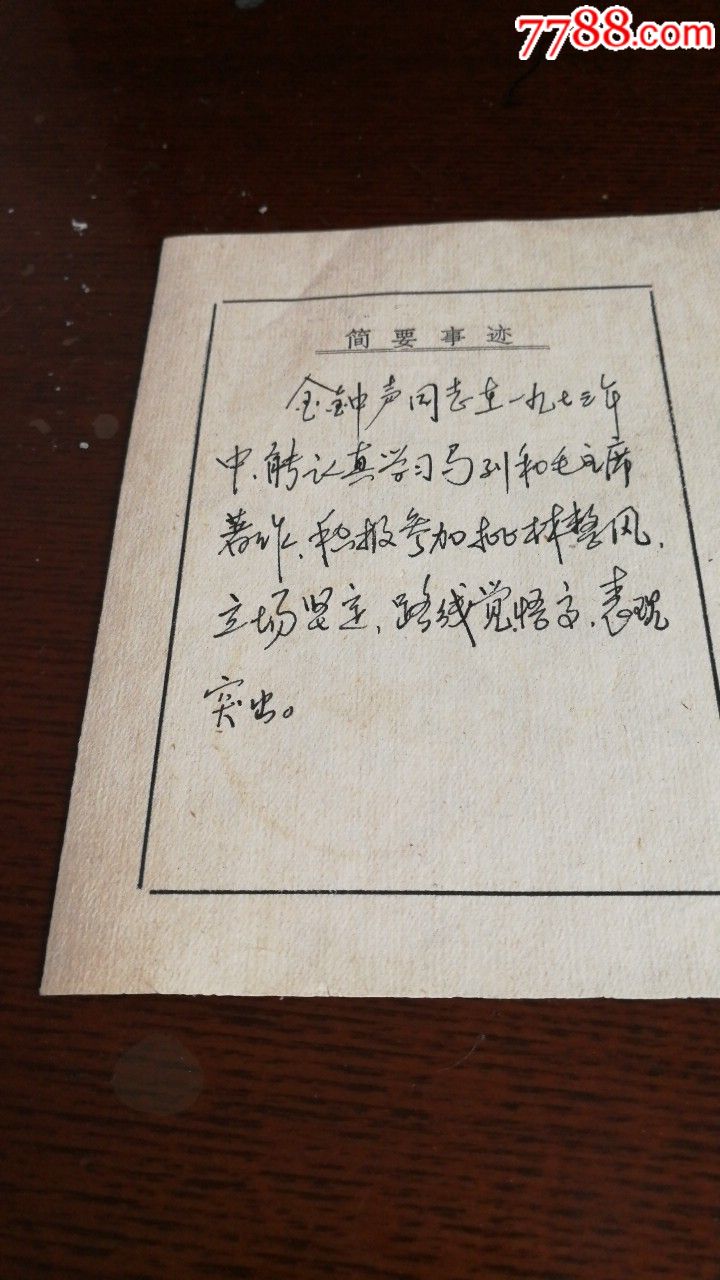 7788.com
简要事迹
金钟声同志在一九七三年
中、能认真学习马列和毛主席
著作、积极参加批林整风、
立场坚定、路线觉悟高、表现
突出。